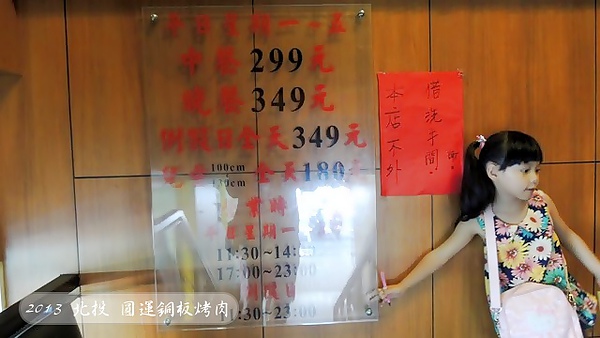 平日星期一~五
中餐299元
晚餐349元
例假日全天349元
100cm
130cm
全天180元
平日星期一
11:30~14:00
17:00~23:00
11:30~23:00
本店不外
借洗手間
2013 北投 圓運銅板烤肉